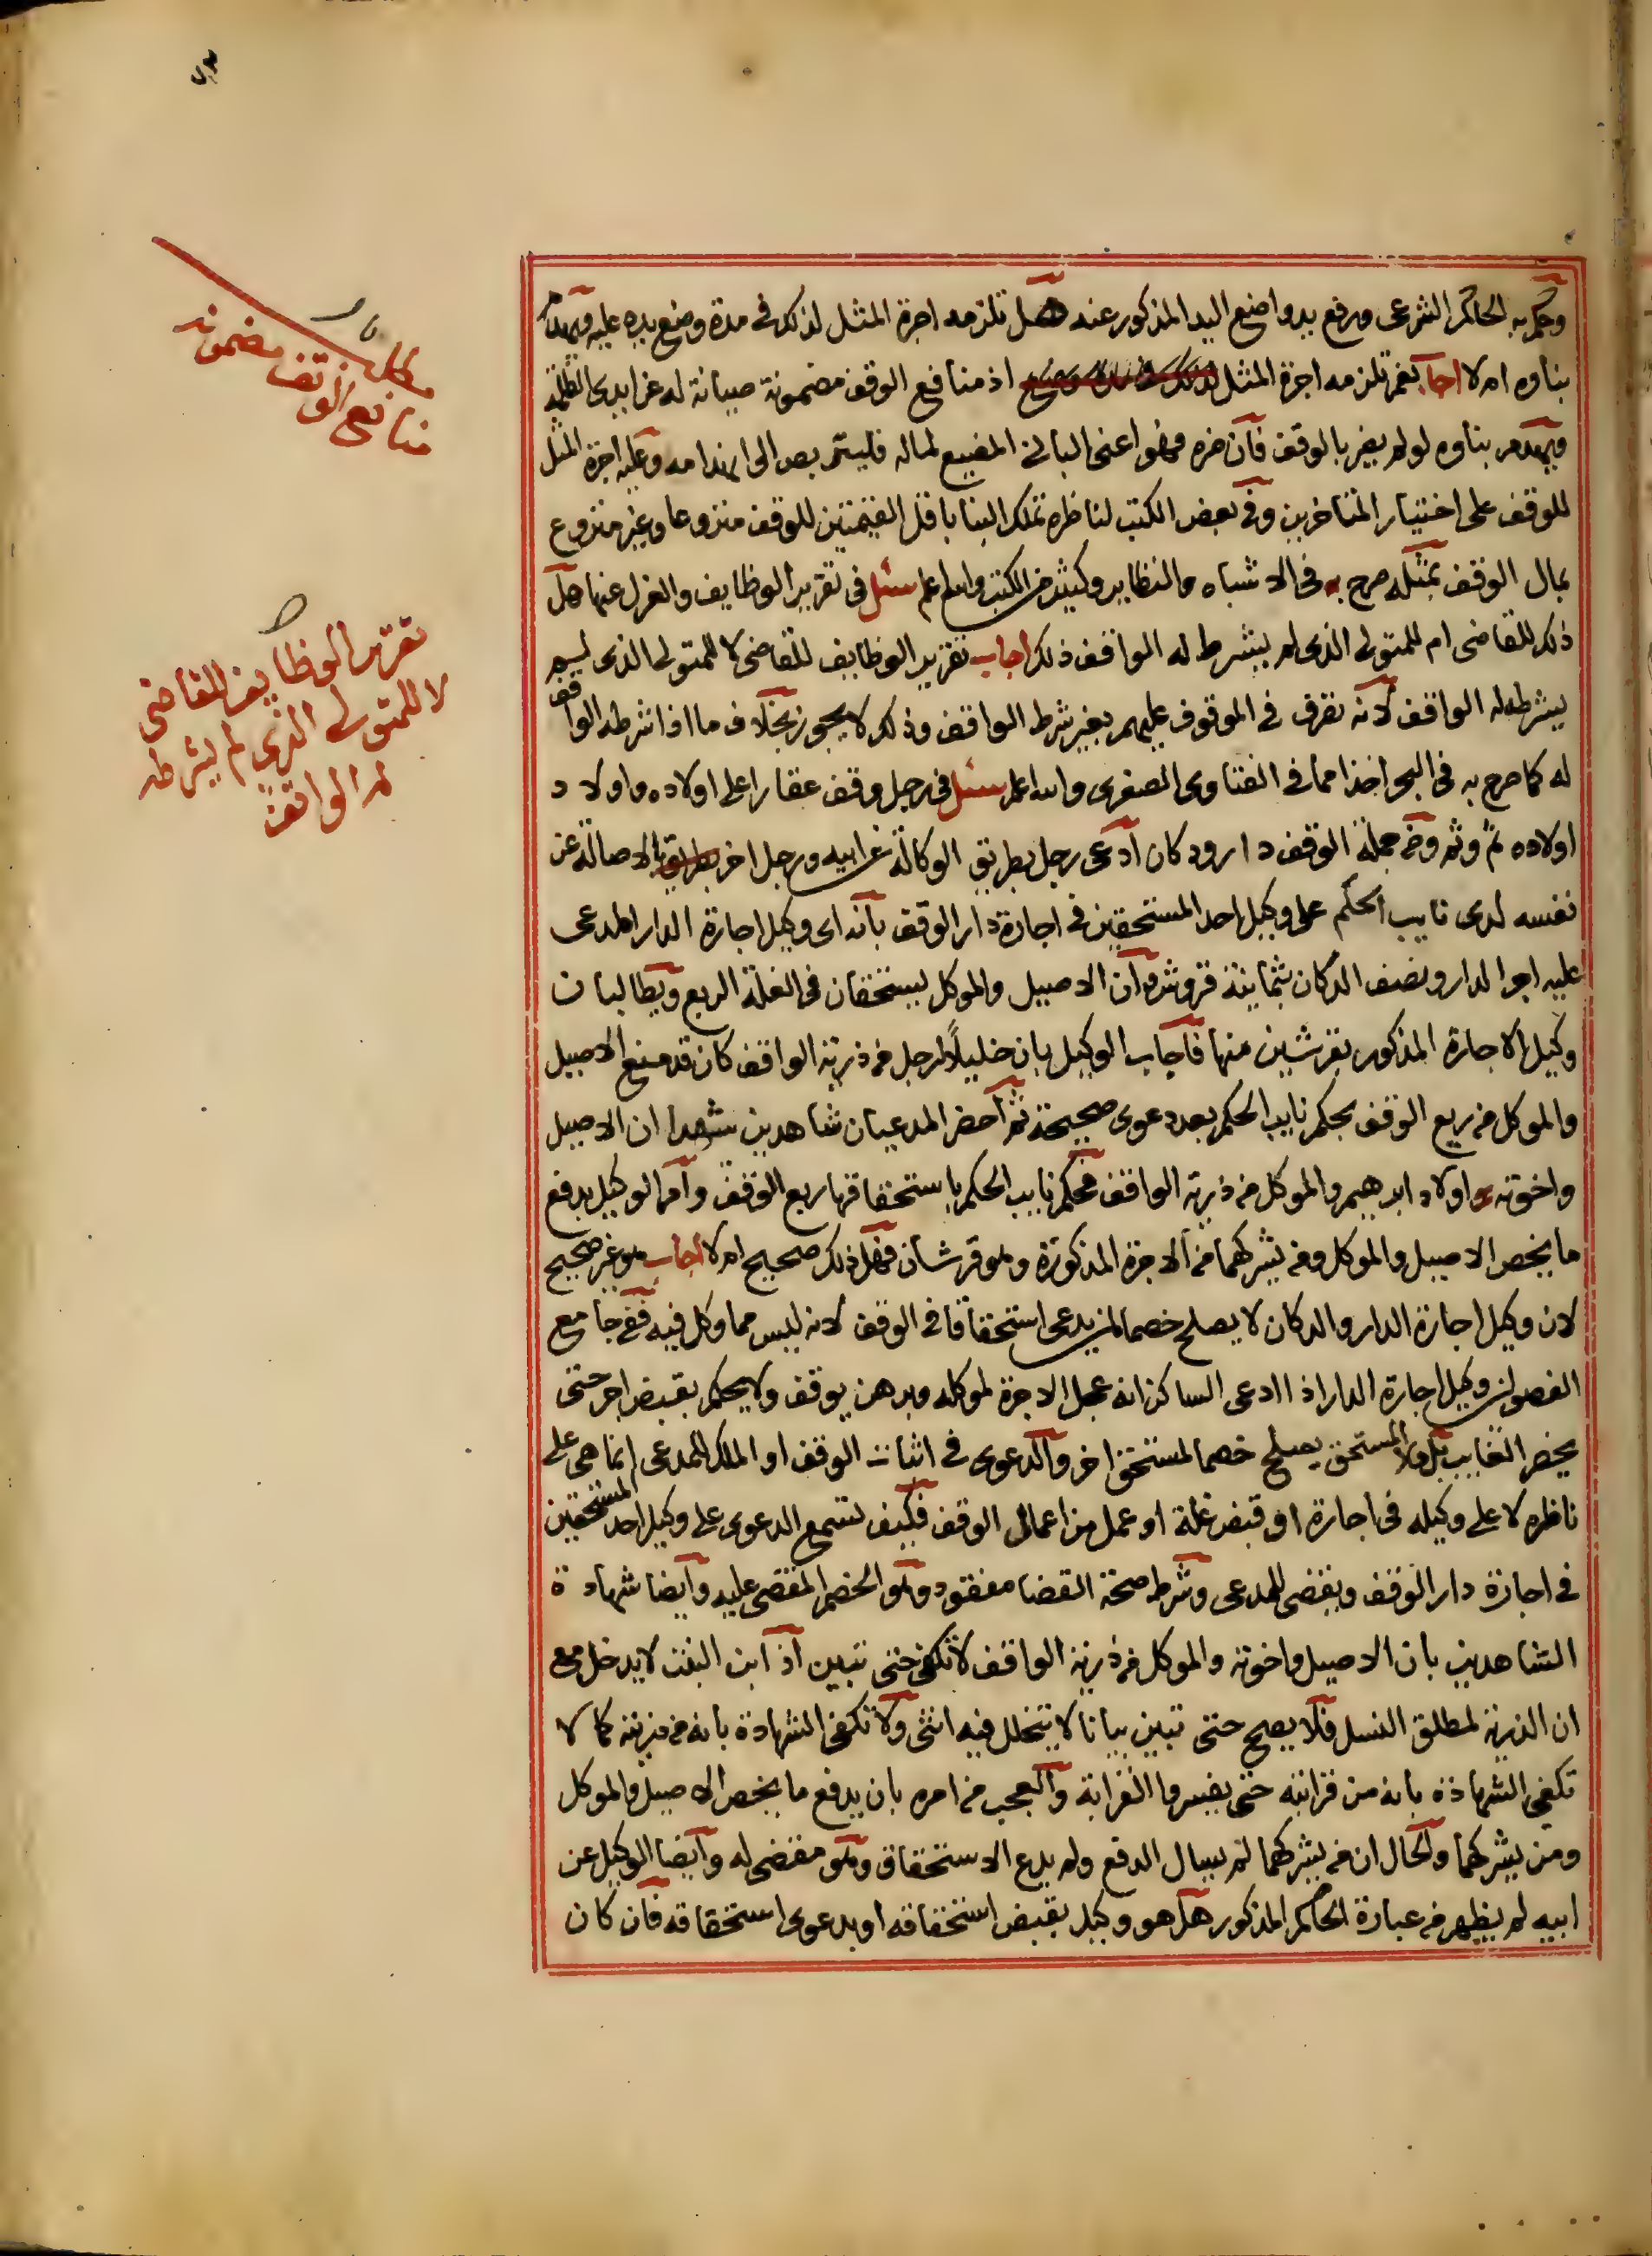 وحكم به الحاكم الشرعى ورفع يد واضع اليد المذكور عنه هل تلزمه اجرة المثل لذلك فى مدة وضع يده عليه ويهدم
بناوه ام لا اجاب نعم تلزمه اجرة المثل اذ منافع الوقف مضمونة صيانة له عن ايدى الظلمة
ويهدم بناوه لو لم يضر بالوقف فان ضره فهو اعنى البانى المضيع لماله فليتربص الى انهدامه وعليه اجرة المثل
للوقف على اختيار المتاخرين وفى بعض الكتب لناظره تملك البنا باقل القيمتين للوقف منزوعا وغير منزوع
بمال الوقف بمثله صرح به فى الاشباه والنظاير وكثير من الكتب والله اعلم سئل فى تقرير الوظايف والعزل عنها هل
ذلك للقاضى ام للمتولى الذى لم يشرط له الواقف ذلك اجاب تقرير الوظايف للقاضى لا للمتولى الذى لم
يشرطه له الواقف لانه تصرف فى الموقوف عليهم بغير شرط الواقف وذلك لا يجوز بخلاف ما اذا شرطه الواقف
له كما صرح به فى البحر اخذا مما فى الفتاوى الصغرى والله اعلم سئل فى رجل وقف عقارا على اولاده واولاد
اولاده ثم وثم ومن جملة الوقف دار ودكان ادعى رجل بطريق الوكالة عن ابيه ورجل اخر بالاصالة عن
نفسه لدى نايب الحكم على وكيل احد المستحقين فى اجارة دار الوقف بانه اى وكيل اجارة الدار المدعى
عليه اجر الدار ونصف الدكان بثمانية قروش وان الاصيل والموكل يستحقان فى الغلة الربع ويطالبان
وكيل الاجارة المذكور بقرشين منها فاجاب الوكيل بان خليلا لرجل من ذرية الواقف كان قد منع الاصيل
والموكل من ريع الوقف بحكم نايب الحكم بعد دعوى صحيحة ثم احضر المدعيان شاهدين شهدا ان الاصيل
واخوته واولاد ابرهيم والموكل من ذرية الواقف فحكم نايب الحكم باستحقاقها ربع الوقف وامر الوكيل بدفع
ما يخص الاصيل والموكل ومن يشركهما من الاجرة المذكورة وهو قرشان فهل ذلك صحيح ام لا اجاب هو غير صحيح
لان وكيل اجارة الدار والدكان لا يصلح خصما لمن يدعى استحقاقا فى الوقف لانه ليس مما وكل فيه ففى جامع
الفصولين وكيل اجارة الدار اذا ادعى الساكن انه عجل الاجرة لموكله وبرهن يوقف ولا يحكم بقبض اجر حتى
يحضر الغايب بل ولا المستحق يصلح خصما لمستحق اخر والدعوى فى اثبات الوقف او الملك للمدعى انما هى على
ناظره لا على وكيله فى اجارة او قبض غلة او عمل من اعمال الوقف فكيف تسمع الدعوى على وكيل احد المستحقين
فى اجارة دار الوقف ويقضى للمدعى وشرط صحة القضا مفقود وهو الخصم المقضى عليه وايضا شهادة
الشاهدين بان الاصيل واخوته والموكل من ذرية الواقف لا تكفى حتى تبين اذ ابن البنت لا يدخل مع
ان الذرية لمطلق النسل فلا يصح حتى تبين بيانا لا يتخلل فيه انثى ولا تكفى الشهادة بانه من ذريته كما لا
تكفى الشهادة بانه من قرابته حتى يفسروا القرابة والعجب من امره بان يدفع ما يخص الاصيل والموكل
ومن يشركهما والحال ان من يشركهما لم يسال الدفع ولم يدع الاستحقاق وهو مقضى له وايضا الوكيل عن
ابيه لم يظهر من عبارة الحاكم المذكور هل هو وكيل بقبض استحقاقه او بدعوى استحقاقه فان كان
مطلب
منافع الوقف مضمونه
تقرير الوظايف للقاضى
لا للمتولى الذى لم يشرطه
له الواقف